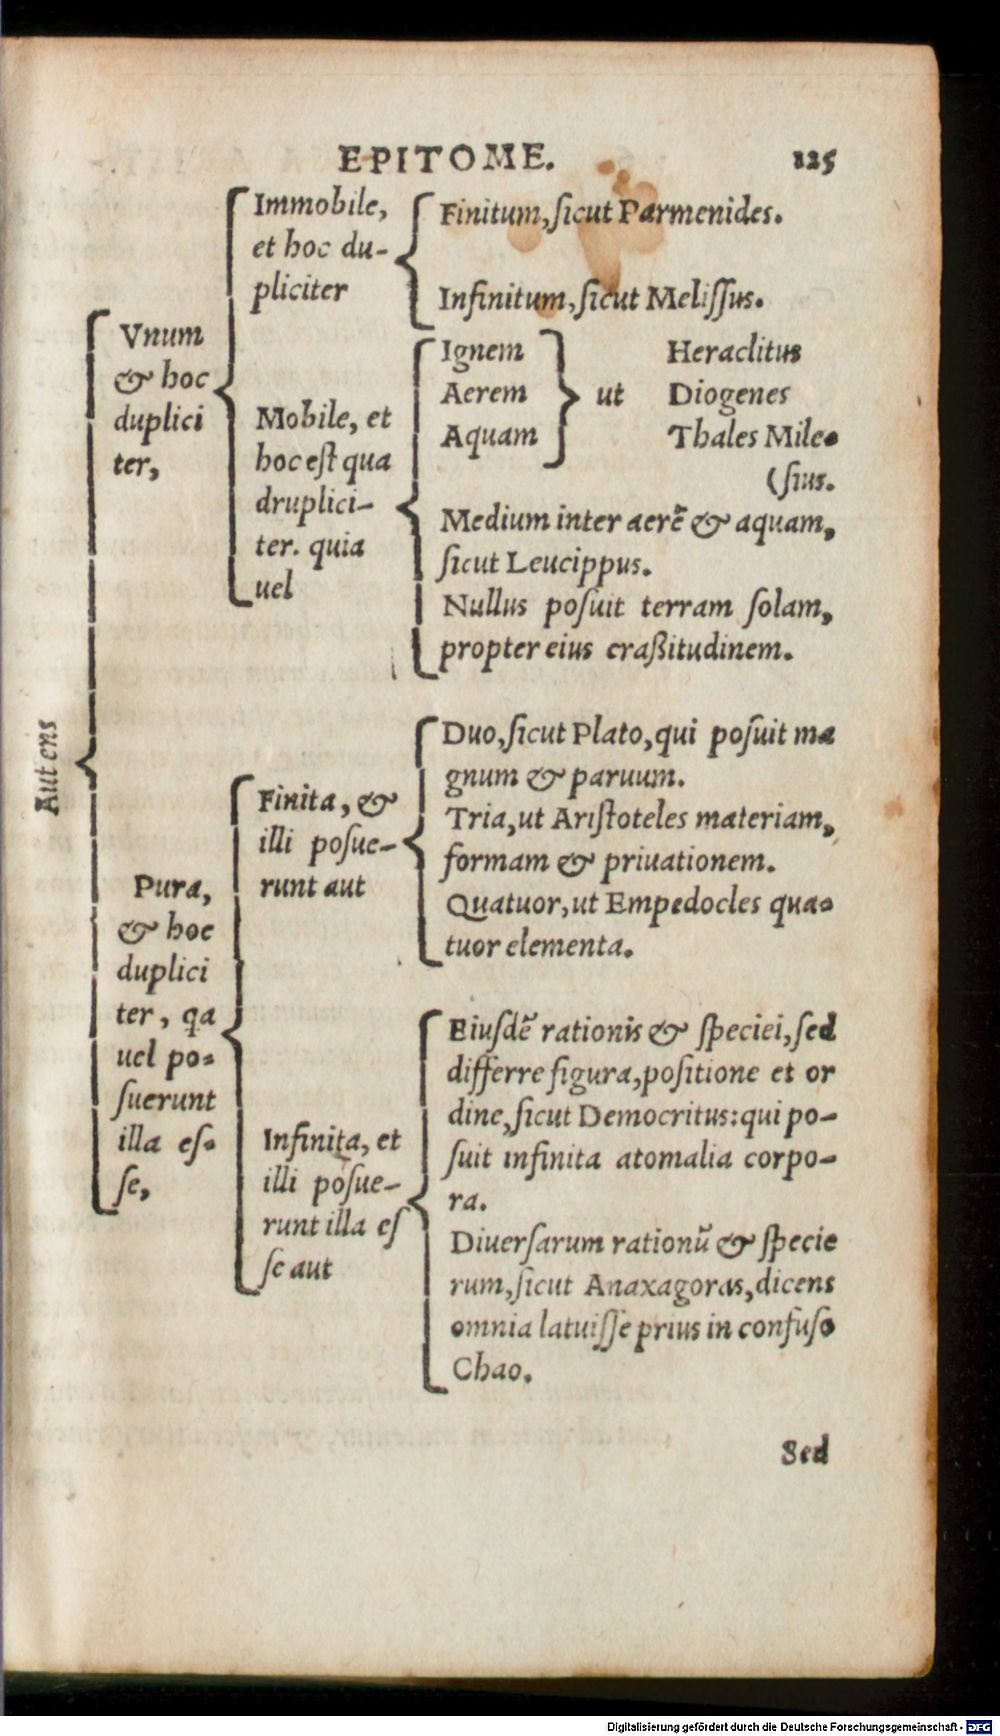 EPITOME. 125
Aut ens
Vnum
& hoc
duplici
ter,
Immobile,
et hoc du-
pliciter
Finitum, sicut Parmenides.
Infinitum, sicut Melissus.
Mobile, et
hoc est qua
druplici-
ter. quia
uel
Ignem
Aerem
Aquam
ut
Heraclitus
Diogenes
Thales Mile-
(sius.
Medium inter aerē & aquam,
sicut Leucippus.
Nullus posuit terram solam,
propter eius craßitudinem.
Pura,
& hoc
duplici
ter, qa
uel po-
suerunt
illa es-
se,
Finita, &
illi posue-
runt aut
Duo, sicut Plato, qui posuit ma
gnum & paruum.
Tria, ut Aristoteles materiam,
formam & priuationem.
Quatuor, ut Empedocles qua-
tuor elementa.
Infinita, et
illi posue-
runt illa es
se aut
Eiusdē rationis & speciei, sed
differre figura, positione et or
dine, sicut Democritus: qui po-
suit infinita atomalia corpo-
ra.
Diuersarum rationū & specie
rum, sicut Anaxagoras, dicens
omnia latuisse prius in confuso
Chao.
Sed
Digitalisierung gefördert durch die Deutsche Forschungsgemeinschaft - DFG